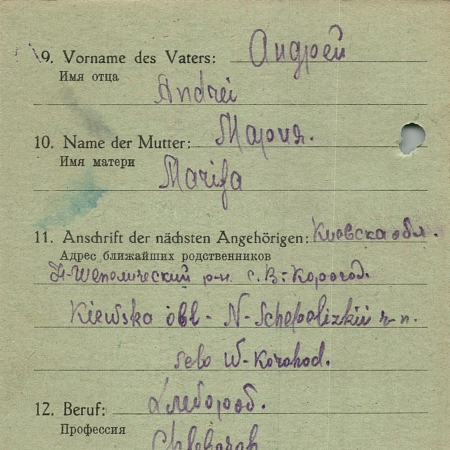 9. Vorname des Vaters: Андрей
Имя отца
Andrei
10. Name der Mutter: Мария.
Имя матери
Marija
11. Anschrift der nächsten Angehörigen: Киевска обл.
Адрес ближайших родственников
Н-Шепелический р-н. с. В-Корогод.
Kiewska obl- N-Schepelizkii r-n.
selo W-Korohod.
12. Beruf: Хлебороб.
Профессия
Chleborob